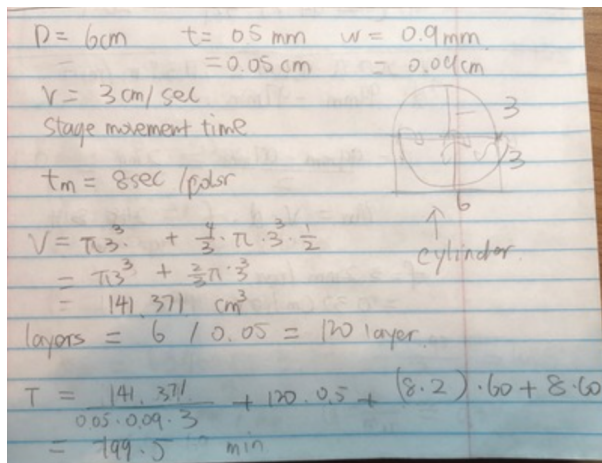 D = 6cm t = 05 mm w = 0.9 mm
= = 0.05 cm = 0.09 cm
V = 3 cm/sec
Stage movement time
tm = 8 sec /
3
3
6
cylinder
V = π3³ + 4/3 · π · 3³ · 1/2
= π3³ + 2/3 π · 3³
= 141.371 cm³
layers = 6 / 0.05 = 120 layer
T = 141.371 / 0.05 · 0.09 · 3 + 120 · 0.5 + (8 · 2) · 60 + 8 · 60
= 199.5 min